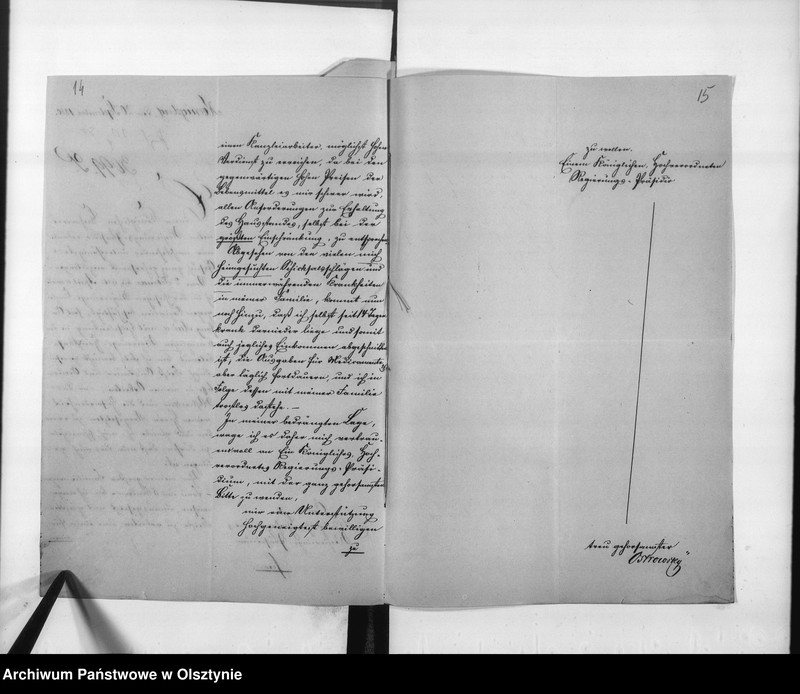 14
einem Kanzleiarbeiter, möglichst hohen
Verdienst zu erreichen, da bei den
gegenwärtigen hohen Preisen der
Lebensmittel es mir schwer wird,
allen Anforderungen zur Erhaltung
des Hausstandes, selbst bei der
größten Einschränkung, zu entsprechen
Abgesehen von den vielen mich
heimgesuchten Schicksalsschlägen und
die immerwährenden Krankheiten
in meiner Familie, kommt nun
noch hinzu, daß ich selbst seit 14 Tagen
krank darnieder liege und somit
auch jegliches Einkommen abgeschnitten
ist, die Ausgaben für Medicamente
aber täglich fortdauern, und ich in
Folge dessen mit meiner Familie
trostlos dastehe. —
In meiner bedrängten Lage,
wage ich es daher mich vertrau-
ensvoll an Ein Königliches, Hoch-
verordnetes Regierungs-Präsi-
dium, mit der ganz gehorsamsten
Bitte zu wenden,
mir eine Unterstützung
hochgeneigtest bewilligen
zu
15
zu wollen.
Einem Königlichen, Hochverordneten
Regierungs-Präsidio
treu gehorsamster
Ostrowsky
Archiwum Państwowe w Olsztynie